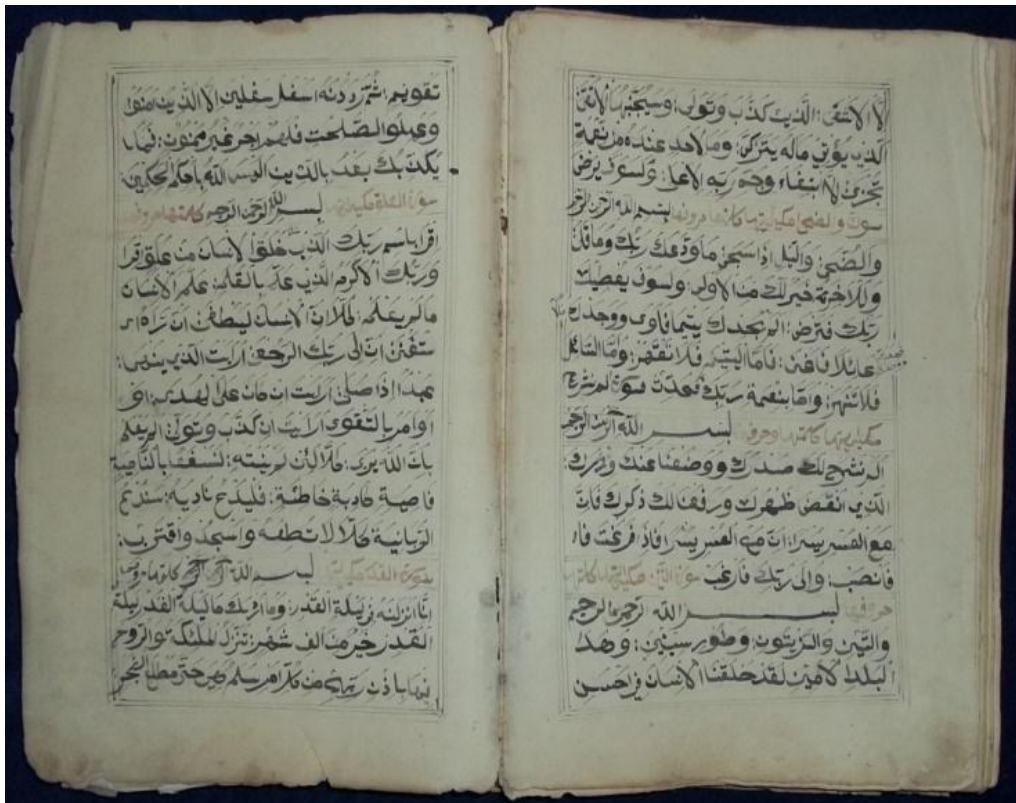 إلا الاشقى الذي كذب وتولى وسيجنبها الاتقى
الذي يؤتي ماله يتزكى وما لاحد عنده من نعمة
تجزى الا ابتغاء وجه ربه الاعلى ولسوف يرضى
سورة والضحى مكية بسم الله الرحمن الرحيم
والضحى واليل اذا سجى ما ودعك ربك وما قلى
وللاخرة خير لك من الاولى ولسوف يعطيك
ربك فترضى الم يجدك يتيما فاوى ووجدك
عائلا فاغنى فاما اليتيم فلا تقهر واما السائل
فلا تنهر واما بنعمة ربك فحدث سورة الم نشرح
مكية بسم الله الرحمن الرحيم
الم نشرح لك صدرك ووضعنا عنك وزرك
الذي انقض ظهرك ورفعنا لك ذكرك فان
مع العسر يسرا ان مع العسر يسرا فاذا فرغت فا
فانصب والى ربك فارغب سورة التين مكية
بسم الله الرحمن الرحيم
والتين والزيتون وطور سينين وهذا
البلد الامين لقد خلقنا الانسان في احسن
تقويم ثم رددنه اسفل سفلين الا الذين امنوا
وعملوا الصلحت فلهم اجر غير ممنون فما
يكذبك بعد بالدين اليس الله باحكم الحكمين
بسم الله الرحمن الرحيم
اقرا باسم ربك الذي خلق خلق الانسان من علق اقرا
وربك الاكرم الذي علم بالقلم علم الانسان
ما لم يعلم كلا ان الانسان ليطغى ان راه ا
ستغنى ان الى ربك الرجعى ارايت الذي ينهى
عبدا اذا صلى ارايت ان كان على الهدى او
او امر بالتقوى ارايت ان كذب وتولى الم يعلم
بان الله يرى كلا لئن لم ينته لنسفعا بالناصية
ناصية كاذبة خاطئة فليدع ناديه سندع
الزبانية كلا لا تطعه واسجد واقترب
سورة القدر مكية بسم الله الرحمن الرحيم
انا انزلنه في ليلة القدر وما ادريك ما ليلة القدر ليلة
القدر خير من الف شهر تنزل الملئكة والروح
فيها باذن ربهم من كل امر سلم هي حتى مطلع الفجر